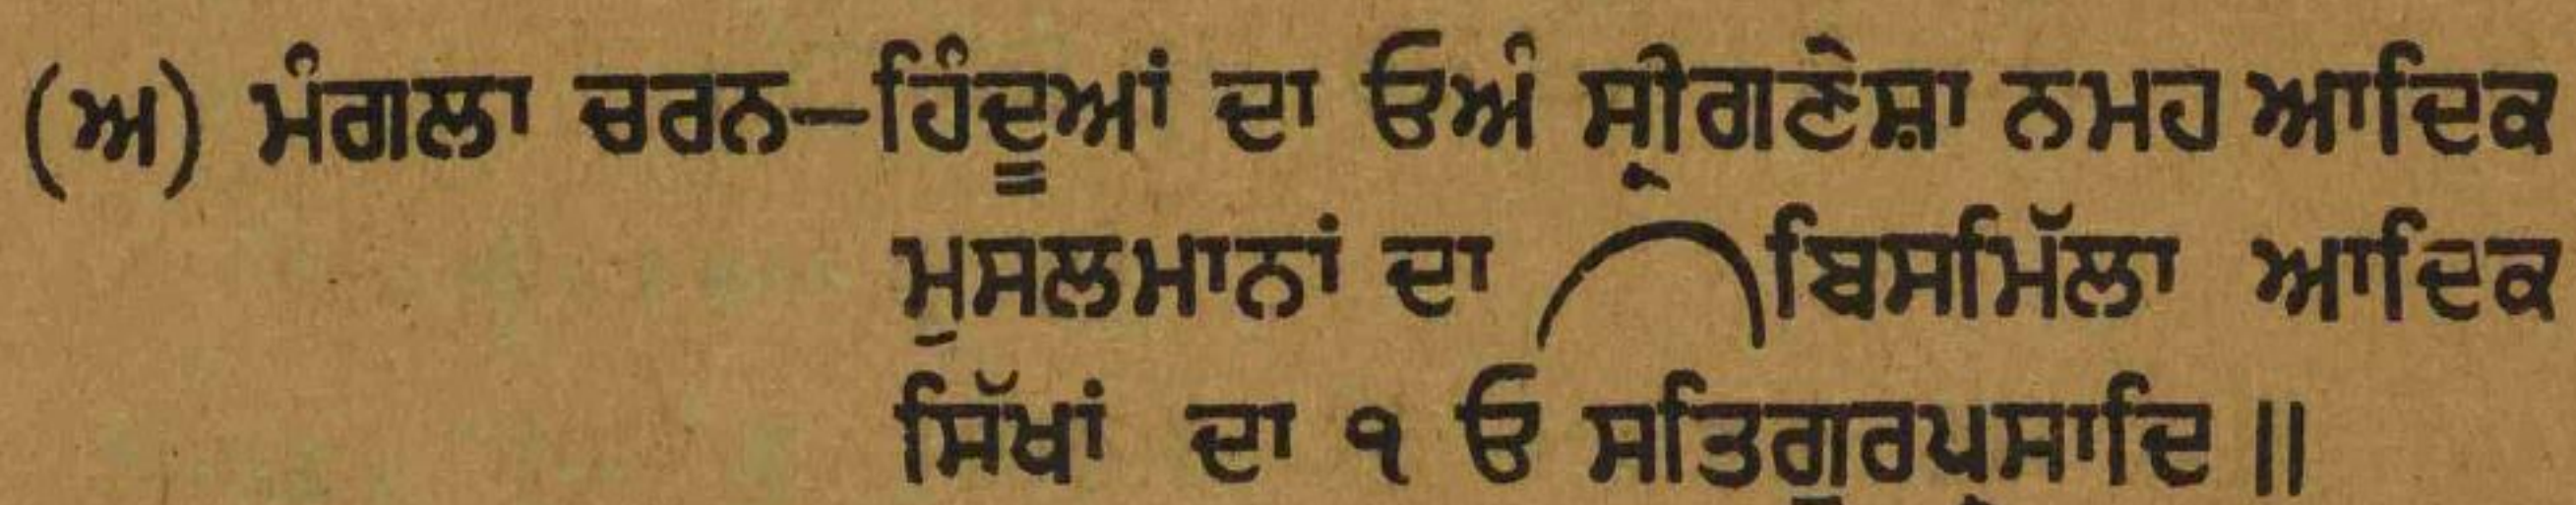 (ਅ) ਮੰਗਲਾ ਚਰਨ—ਹਿੰਦੂਆਂ ਦਾ ਓਅੰ ਸ੍ਰੀਗਣੇਸ਼ਾ ਨਮਹ ਆਦਿਕ
ਮੁਸਲਮਾਨਾਂ ਦਾ ਬਿਸਮਿੱਲਾ ਆਦਿਕ
ਸਿੱਖਾਂ ਦਾ ੧ ਓ ਸਤਿਗੁਰਪ੍ਰਸਾਦਿ ॥